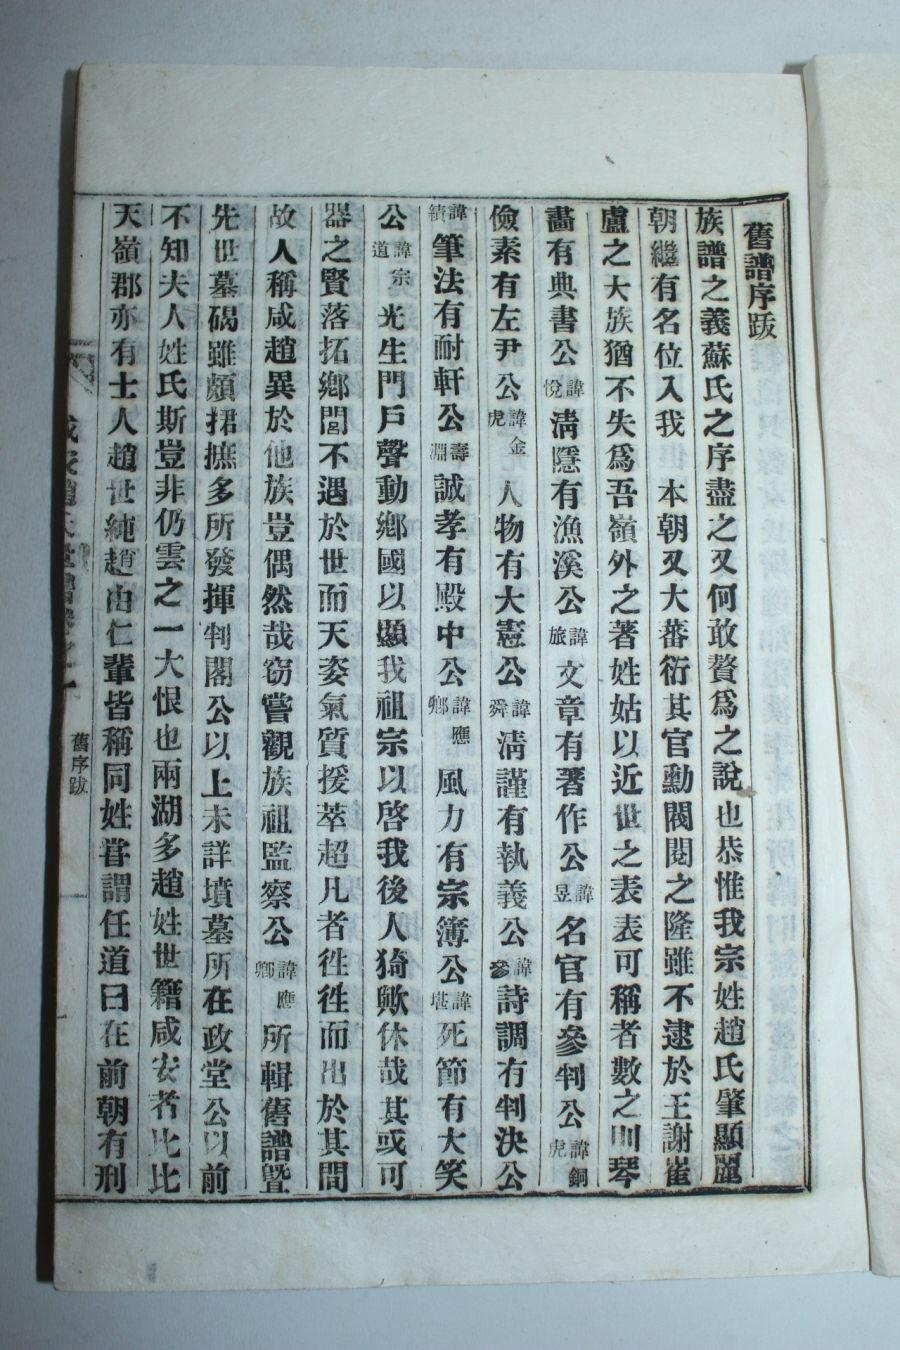 舊譜序跋
族譜之義蘇氏之序盡之又何敢贅爲之說也恭惟我宗姓趙氏肇顯麗
朝繼有名位入我 本朝又大蕃衍其官勳閥閱之隆雖不逮於王謝崔
盧之大族猶不失爲吾嶺外之著姓姑以近世之表表可稱者數之則琴
畵有典書公諱悅淸隱有漁溪公諱旅文章有著作公諱昱名官有參判公諱銅虎
儉素有左尹公諱金虎人物有大憲公諱舜淸謹有執義公諱參詩調有判決公
諱績筆法有耐軒公諱淵誠孝有殿中公諱應卿風力有宗簿公諱堪死節有大笑
公諱宗道光生門戶聲動鄕國以顯我祖宗以啓我後人猗歟休哉其或可
器之賢落拓鄕閭不遇於世而天姿氣質援萃超凡者徃徃而出於其間
故人稱咸趙異於他族豈偶然哉窃嘗觀族祖監察公諱應卿所輯舊譜曁
先世墓碣雖頗捃摭多所發揮判閣公以上未詳墳墓所在政堂公以前
不知夫人姓氏斯豈非仍雲之一大恨也兩湖多趙姓世籍咸安者比比
天嶺郡亦有士人趙世純趙由仁輩皆稱同姓嘗謂任道曰在前朝有刑
舊序跋